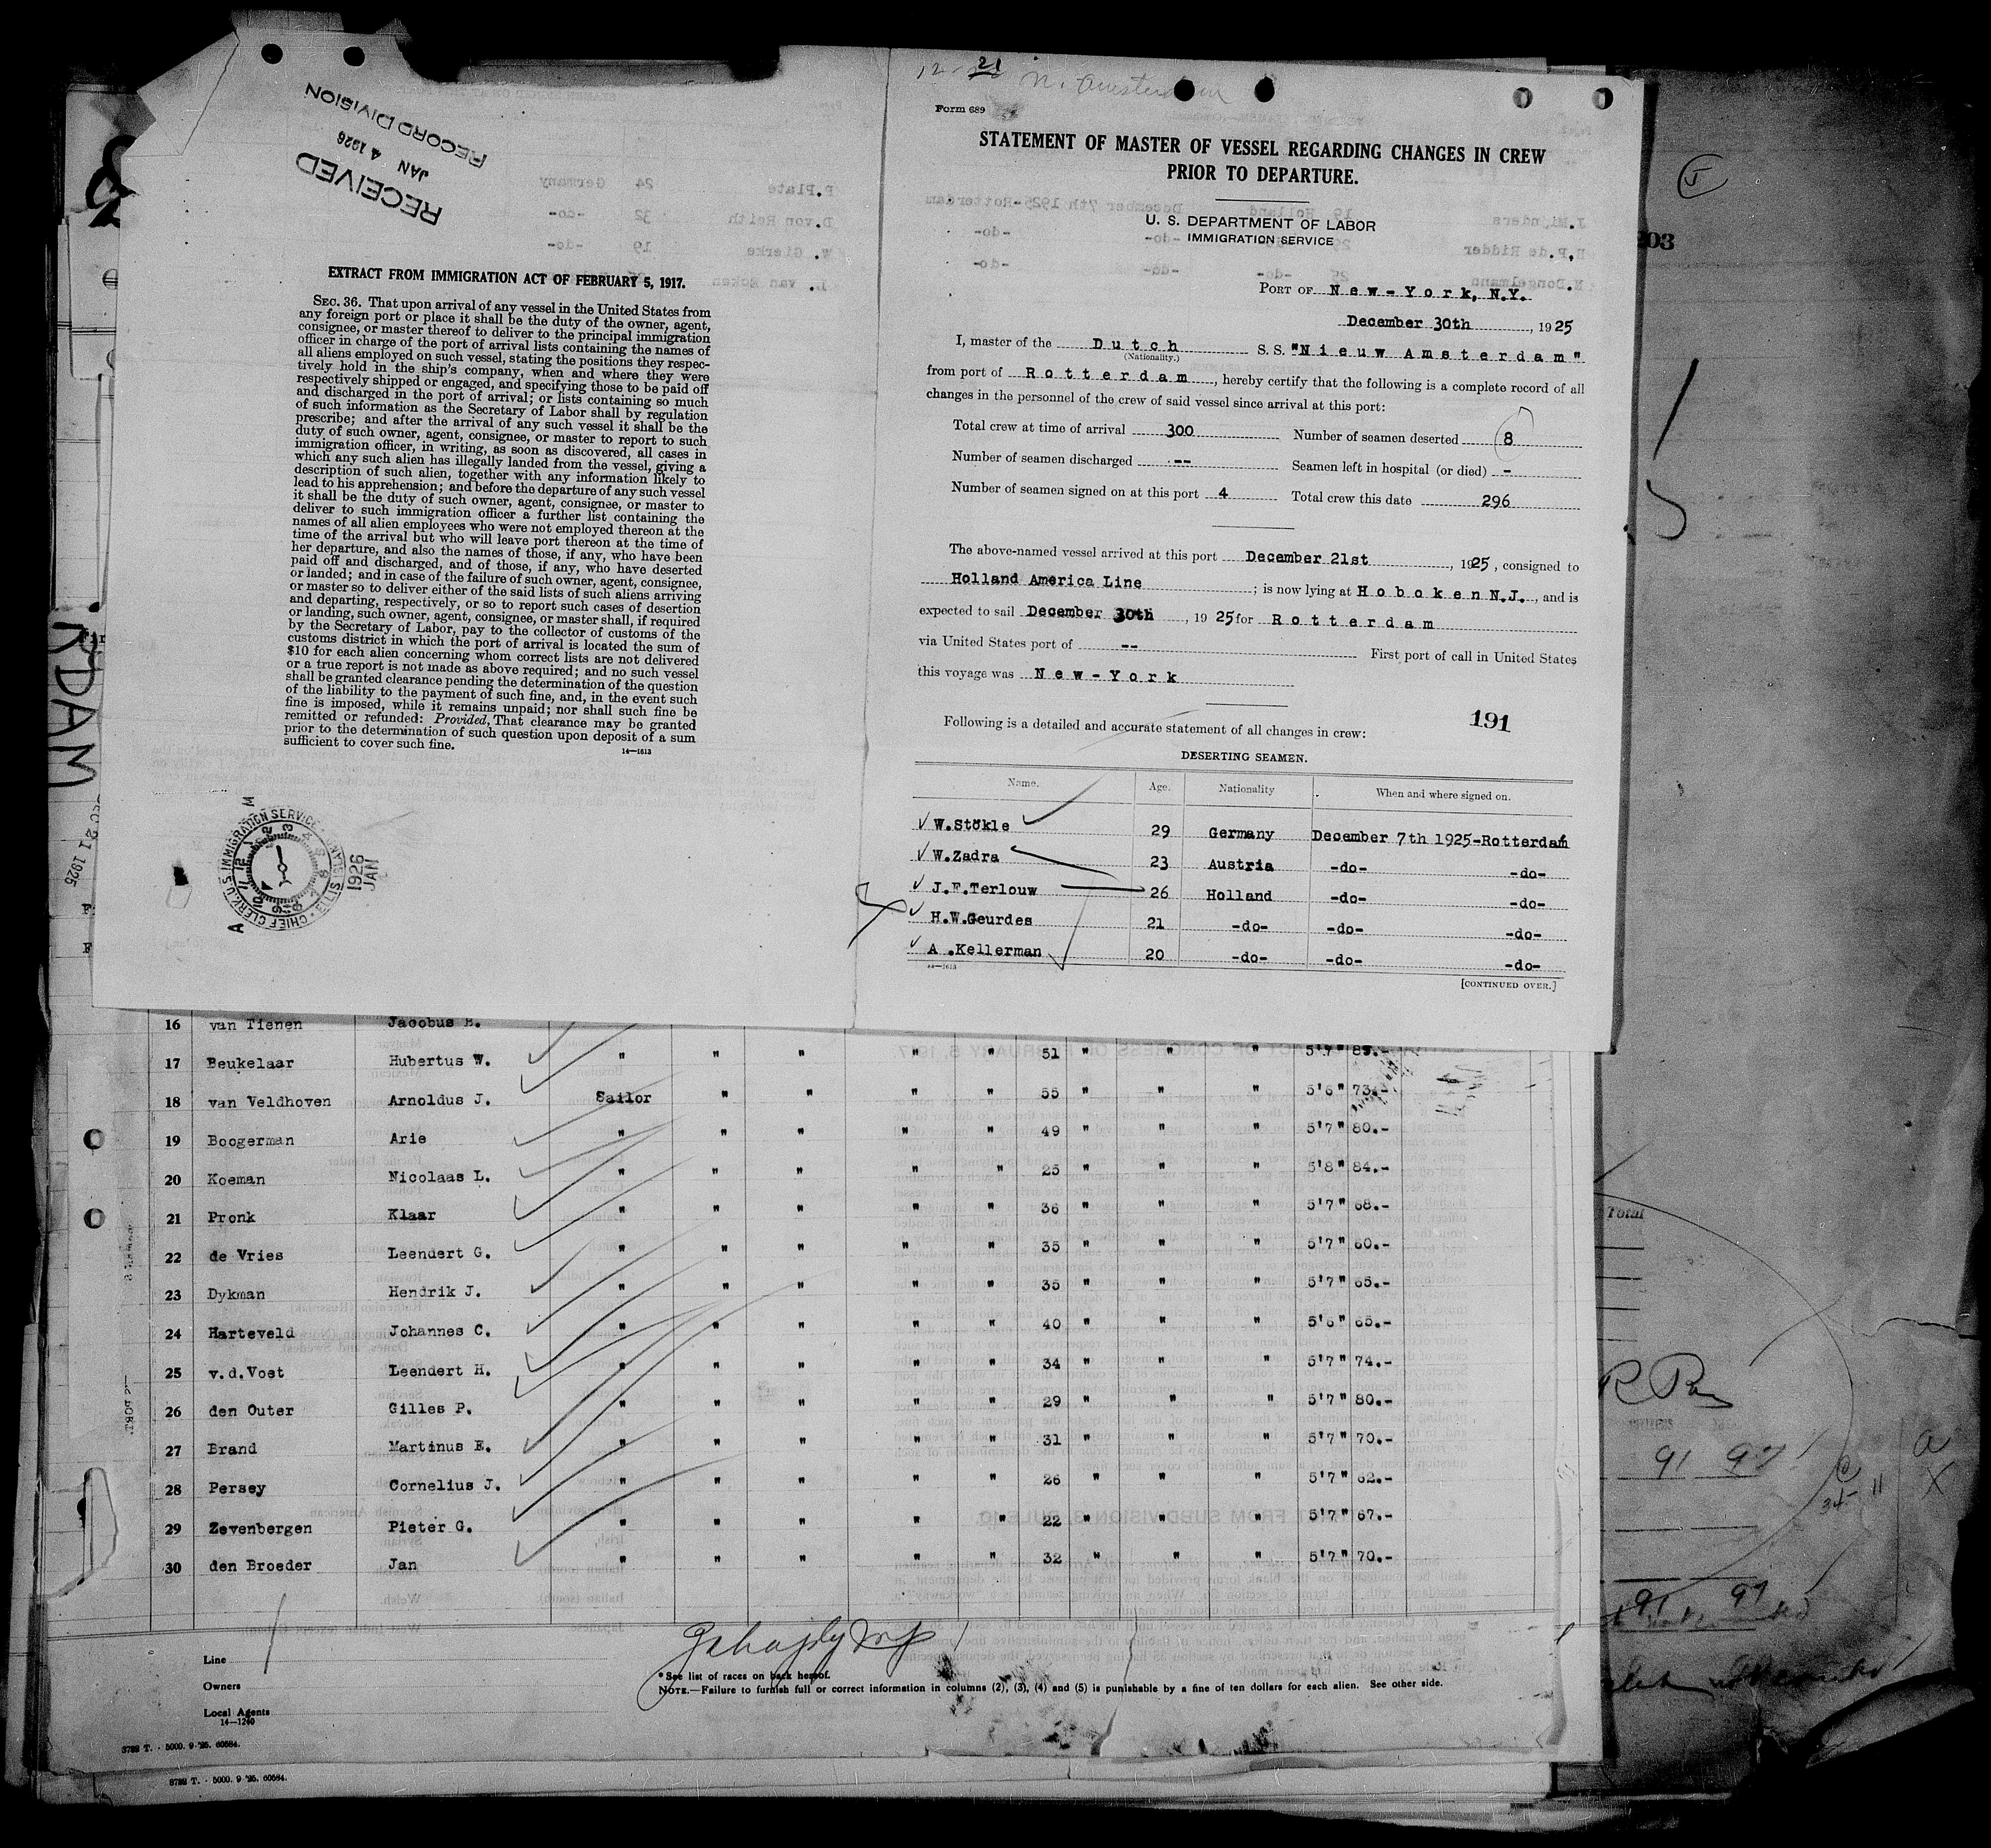 RECEIVED
JAN 4 1926
RECORD DIVISION
EXTRACT FROM IMMIGRATION ACT OF FEBRUARY 5, 1917.
SEC. 36. That upon arrival of any vessel in the United States from
any foreign port or place it shall be the duty of the owner, agent,
consignee, or master thereof to deliver to the principal immigration
officer in charge of the port of arrival lists containing the names of
all aliens employed on such vessel, stating the positions they respec-
tively hold in the ship's company, when and where they were
respectively shipped or engaged, and specifying those to be paid off
and discharged in the port of arrival; or lists containing so much
of such information as the Secretary of Labor shall by regulation
prescribe; and after the arrival of any such vessel it shall be the
duty of such owner, agent, consignee, or master to report to such
immigration officer, in writing, as soon as discovered, all cases in
which any such alien has illegally landed from the vessel, giving a
description of such alien, together with any information likely to
lead to his apprehension; and before the departure of any such vessel
it shall be the duty of such owner, agent, consignee, or master to
deliver to such immigration officer a further list containing the
names of all alien employees who were not employed thereon at the
time of the arrival but who will leave port thereon at the time of
her departure, and also the names of those, if any, who have been
paid off and discharged, and of those, if any, who have deserted
or landed; and in case of the failure of such owner, agent, consignee,
or master so to deliver either of the said lists of such aliens arriving
and departing, respectively, or so to report such cases of desertion
or landing, such owner, agent, consignee, or master shall, if required
by the Secretary of Labor, pay to the collector of customs of the
customs district in which the port of arrival is located the sum of
$10 for each alien concerning whom correct lists are not delivered
or a true report is not made as above required; and no such vessel
shall be granted clearance pending the determination of the question
of the liability to the payment of such fine, and, in the event such
fine is imposed, while it remains unpaid; nor shall such fine be
remitted or refunded: Provided, That clearance may be granted
prior to the determination of such question upon deposit of a sum
sufficient to cover such fine.
14—1613
CHIEF CLERK U.S. IMMIGRATION SERVICE
1926
JAN
RDAM
21 1925
12-21 N. Amsterdam
Form 689
STATEMENT OF MASTER OF VESSEL REGARDING CHANGES IN CREW
PRIOR TO DEPARTURE.
U. S. DEPARTMENT OF LABOR
IMMIGRATION SERVICE
PORT OF New-York, N.Y.
December 30th, 1925
I, master of the Dutch S.S. "Nieuw Amsterdam"
(Nationality.)
from port of Rotterdam, hereby certify that the following is a complete record of all
changes in the personnel of the crew of said vessel since arrival at this port:
Total crew at time of arrival 300 Number of seamen deserted 8
Number of seamen discharged -- Seamen left in hospital (or died) -
Number of seamen signed on at this port 4 Total crew this date 296
The above-named vessel arrived at this port December 21st, 1925, consigned to
Holland America Line; is now lying at Hoboken N.J., and is
expected to sail December 30th, 1925 for Rotterdam
via United States port of -- First port of call in United States
this voyage was New-York
Following is a detailed and accurate statement of all changes in crew:
191
DESERTING SEAMEN.
Name. Age. Nationality When and where signed on.
W.Stökle 29 Germany December 7th 1925-Rotterdam
W.Zadra 23 Austria -do- -do-
J.F.Terlouw 26 Holland -do- -do-
H.W.Geurdes 21 -do- -do- -do-
A.Kellerman 20 -do- -do- -do-
14—1613
[CONTINUED OVER.]
16 van Tienen Jacobus B.
17 Beukelaar Hubertus W. " " " " " 51 " " " 5'7" 85.-
18 van Veldhoven Arnoldus J. Sailor " " " " 55 " " " 5'6" 73.-
19 Boogerman Arie " " " " " 49 " " " 5'7" 80.-
20 Koeman Nicolaas L. " " " " " 25 " " " 5'8" 84.-
21 Pronk Klaar " " " " " 36 " " " 5'7" 68.-
22 de Vries Leendert G. " " " " " 35 " " " 5'7" 60.-
23 Dykman Hendrik J. " " " " " 35 " " " 5'7" 65.-
24 Harteveld Johannes C. " " " " " 40 " " " 5'6" 65.-
25 v.d.Voet Leendert H. " " " " " 34 " " " 5'7" 74.-
26 den Outer Gilles P. " " " " " 29 " " " 5'7" 80.-
27 Brand Martinus E. " " " " " 31 " " " 5'7" 70.-
28 Persey Cornelius J. " " " " " 26 " " " 5'7" 62.-
29 Zevenbergen Pieter G. " " " " " 22 " " " 5'7" 67.-
30 den Broeder Jan " " " " " 32 " " " 5'7" 70.-
Line
Owners
Local Agents
14—1240
*See list of races on back hereof.
NOTE.—Failure to furnish full or correct information in columns (2), (3), (4) and (5) is punishable by a fine of ten dollars for each alien. See other side.
3722 T. - 5000. 9-'25. 60584.
3722 T. - 5000. 9-'25. 60584.
203
Total
91 97
34 11
91 97